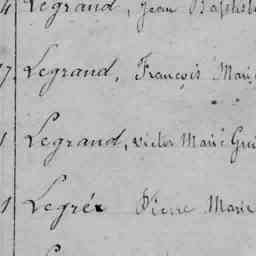 4 Legrand, Jean Baptist
7 Legrand, François Marie
1 Legrand, Victor Marie Gui
1 Legréx Pierre Marie